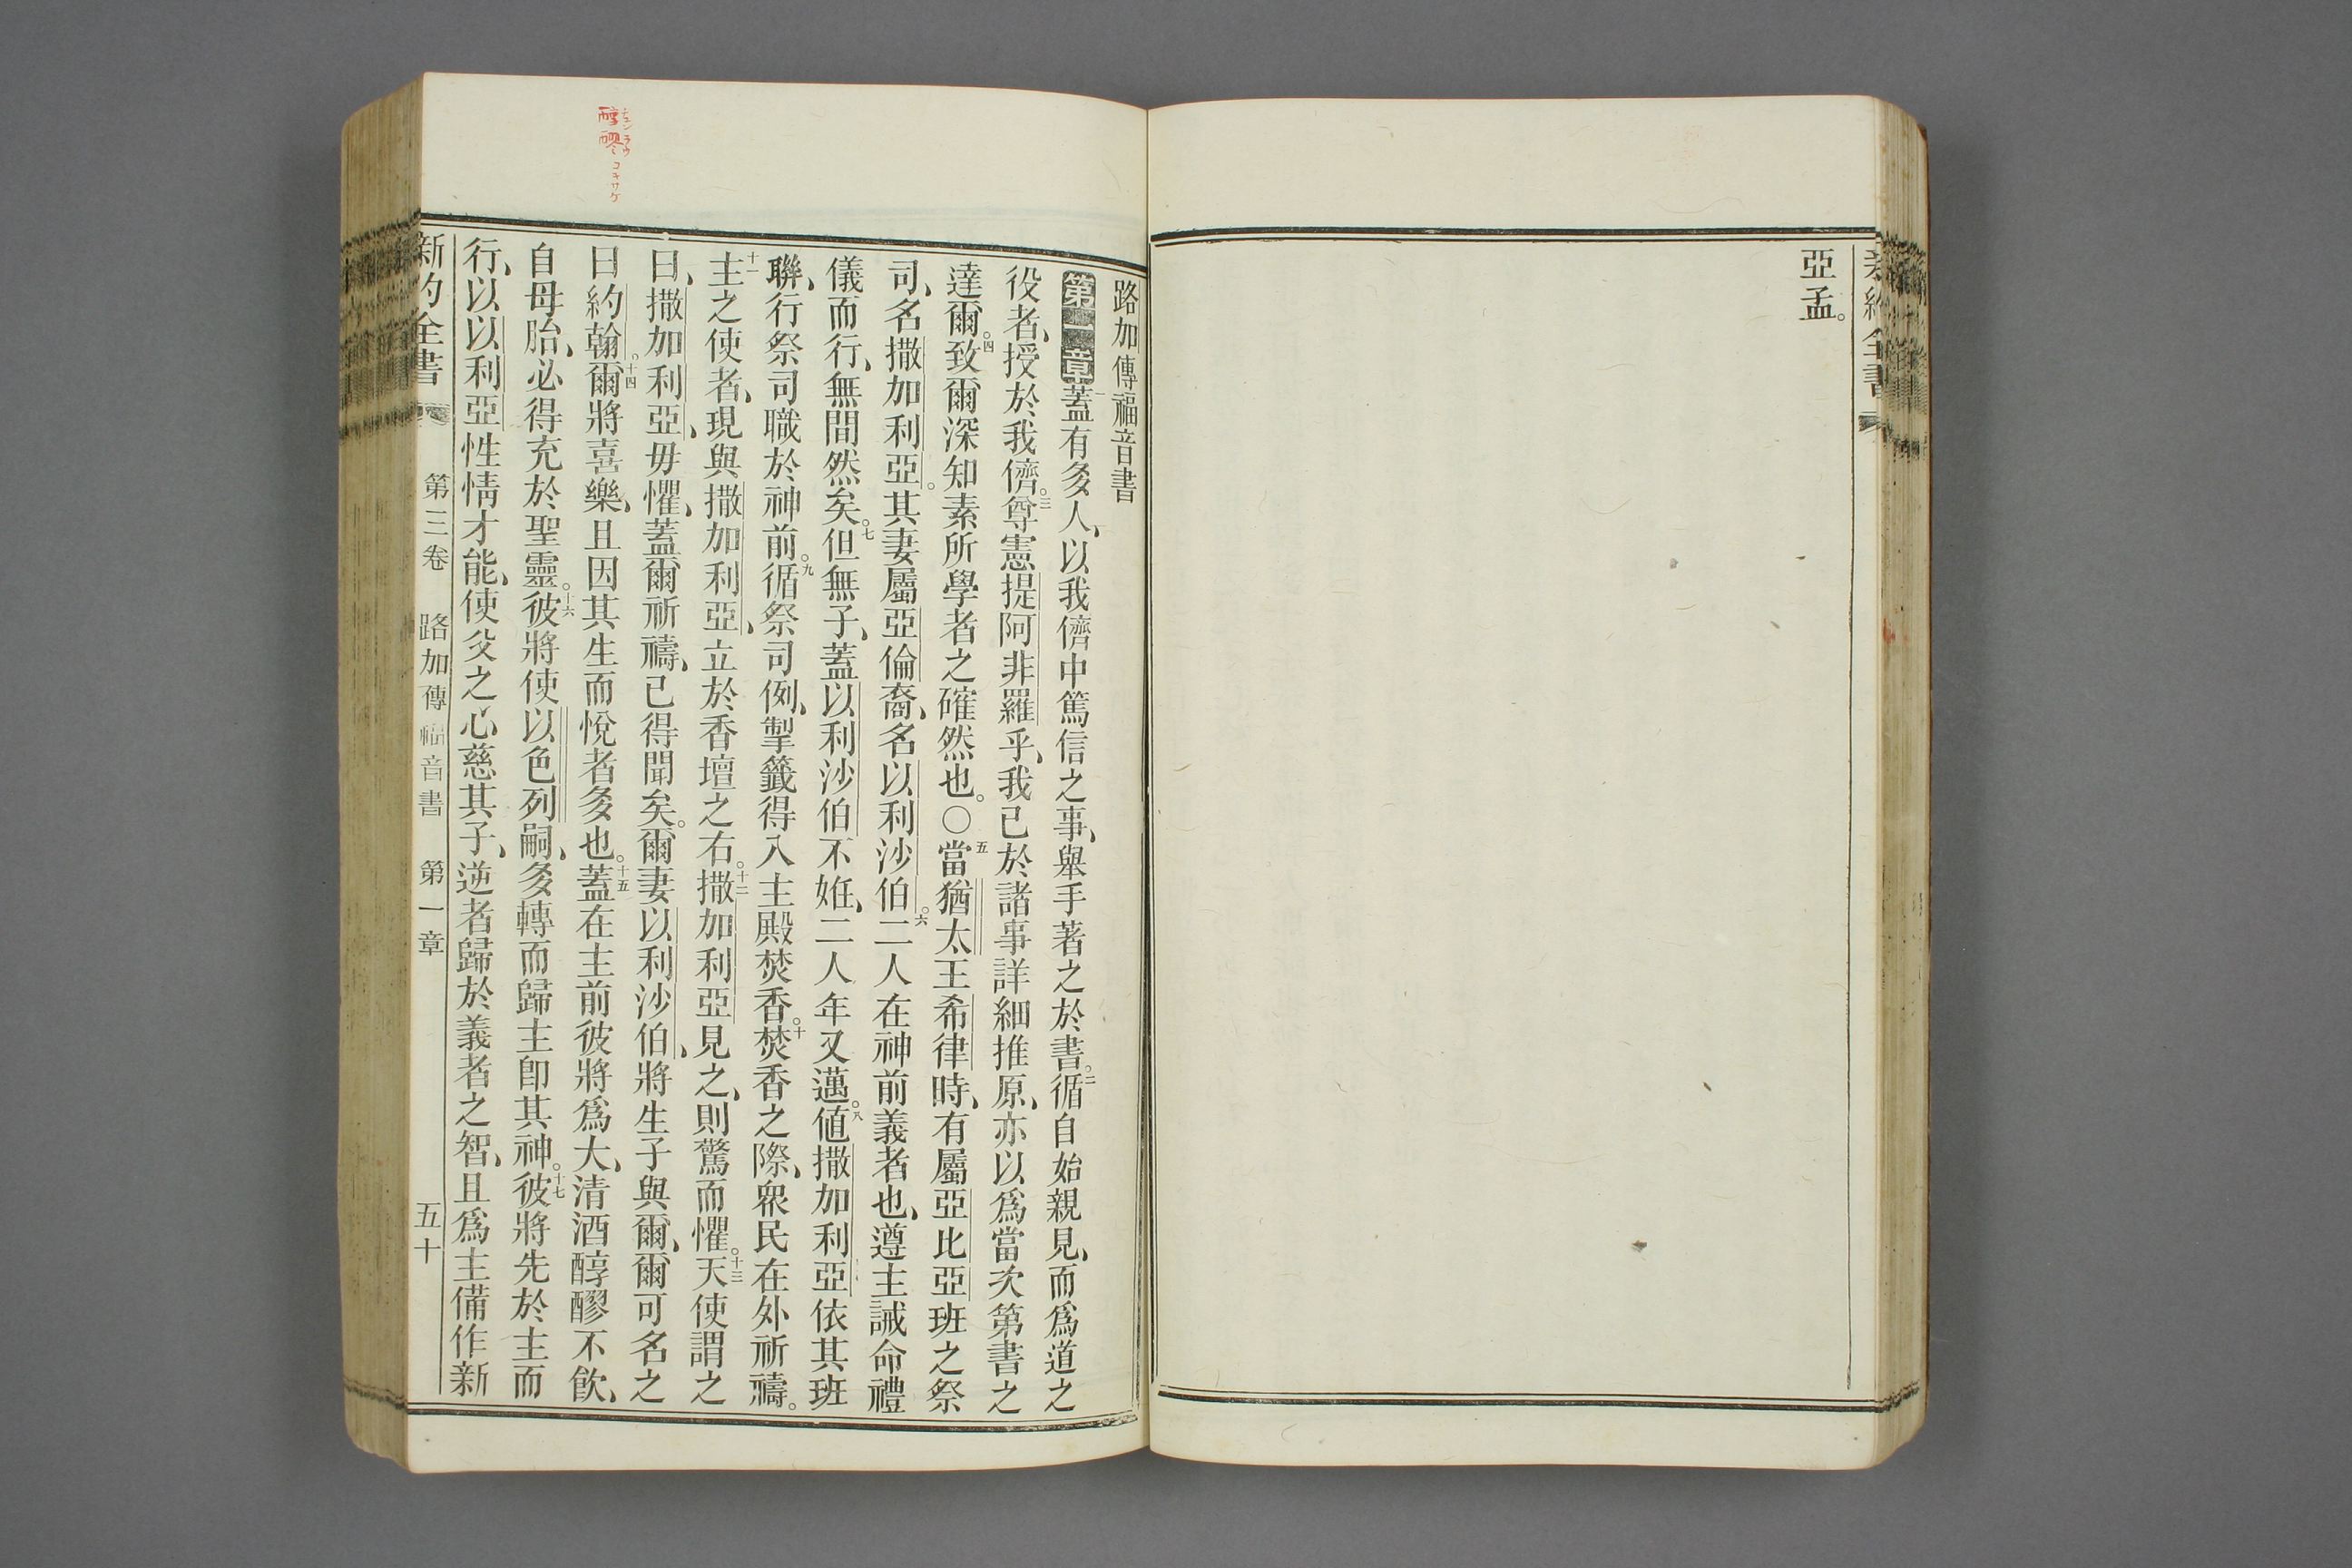 亞孟。
路加傳福音書
第一章 一蓋有多人、以我儕中篤信之事、舉手著之於書。二循自始親見、而爲道之
役者、授於我儕。三尊憲提阿非羅乎、我已於諸事詳細推原、亦以爲當次第書之
達爾。四致爾深知素所學者之確然也。○五當猶太王希律時、有屬亞比亞班之祭
司、名撒加利亞。其妻屬亞倫裔、名以利沙伯。六二人在神前義者也、遵主誡命禮
儀而行、無間然矣。七但無子、蓋以利沙伯不姙、二人年又邁。八値撒加利亞依其班
聯、行祭司職於神前。九循祭司例、掣籤得入主殿焚香。十焚香之際、衆民在外祈禱。
十一主之使者、現與撒加利亞、立於香壇之右。十二撒加利亞見之、則驚而懼。十三天使謂之
曰、撒加利亞、毋懼、蓋爾祈禱、已得聞矣。爾妻以利沙伯、將生子與爾、爾可名之
曰約翰。十四爾將喜樂、且因其生而悅者多也。十五蓋在主前彼將爲大、清酒醇醪不飮、
自母胎、必得充於聖靈。十六彼將使以色列嗣、多轉而歸主卽其神。十七彼將先於主而
行、以以利亞性情才能、使父之心慈其子、逆者歸於義者之智、且爲主備作新
新約全書 第三卷 路加傳福音書 第一章 五十
醇醪 コキサケ